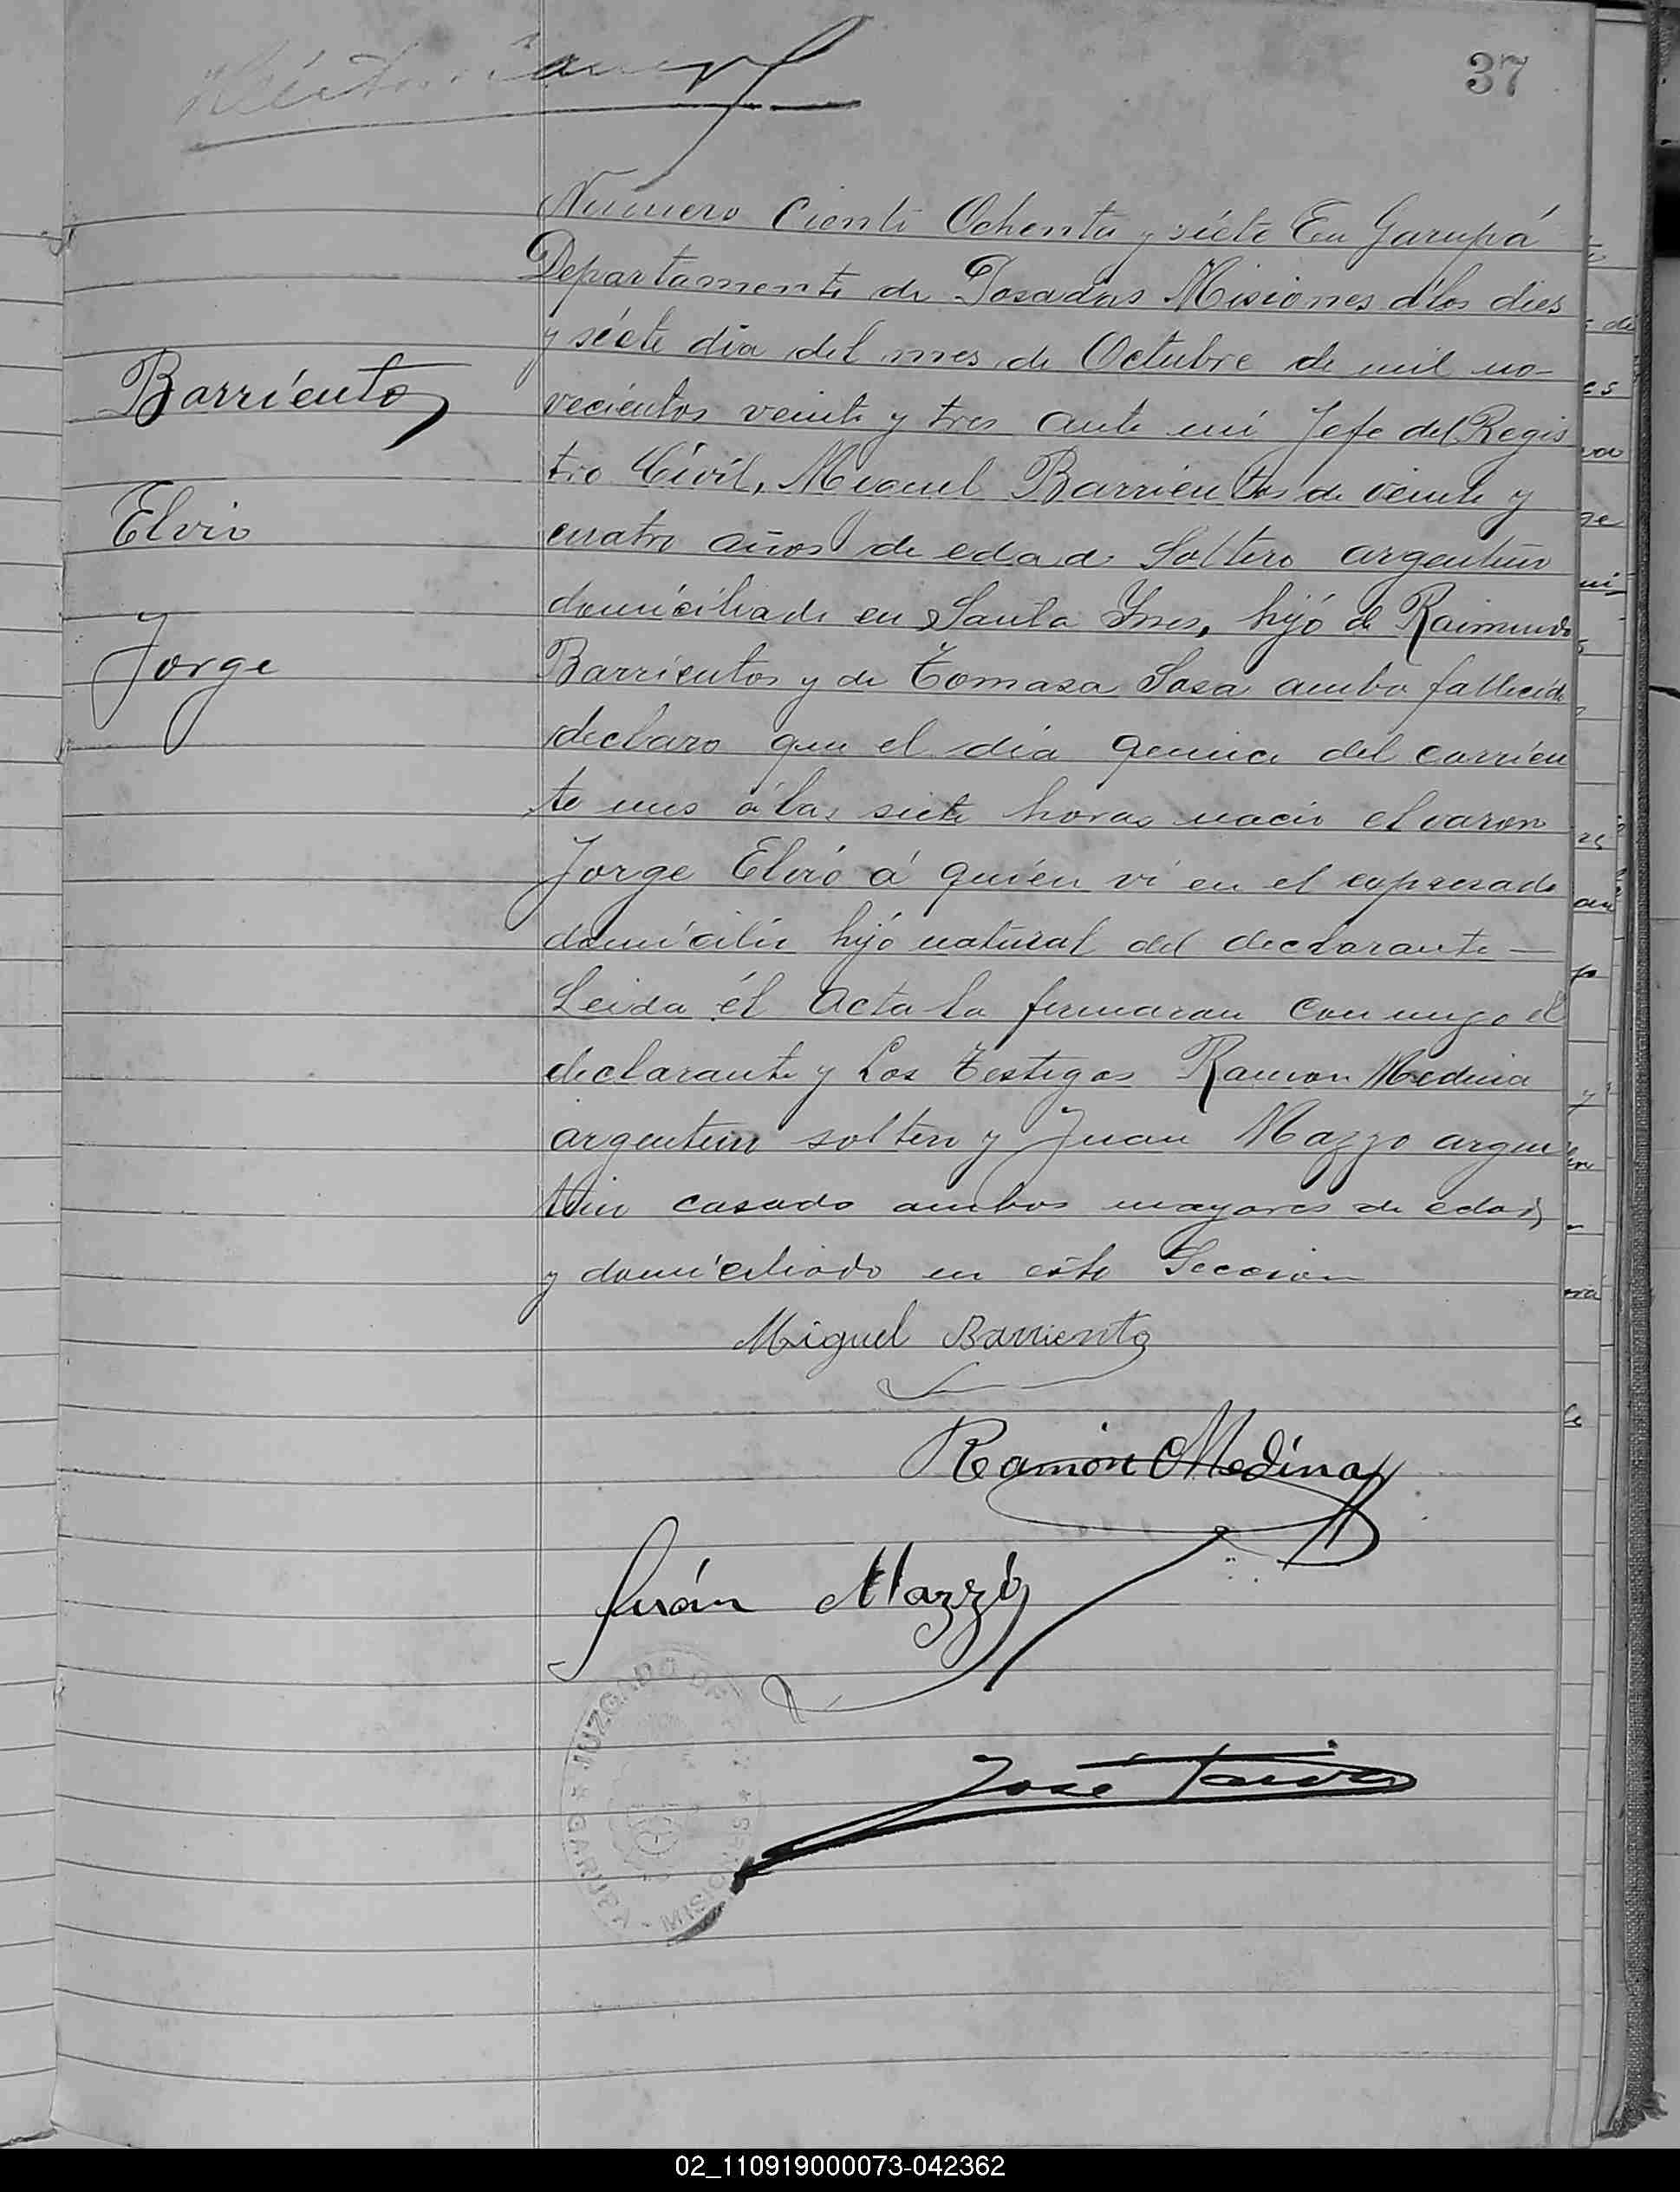 37
Número Ciento Ochenta y siéte En Garupá
Departamento de Posadas Misiones á los dies
y siéete dia del mes de Octubre de mil no-
vecientos veinte y tres ante mí Jefe del Regis
Barriento
tro Civil, Miguel Barrientos de veinte y
Elvio
cuatro años de edad Soltero argentino
domiciliado en Santa Ynes, hijó de Raimundo
Jorge
Barrientos y de Tomasa Sosa ambo fallecido
declaro que el dia quince del corrien
te mes á las siete horas nacio el varon
Jorge Elvió á quién ví en el expresado
domicilio hijó natural del declarante —
Leida él Acta la firmaran con migo el
declarante y Los Testigos Ramon Medina
argentino soltero y Juan Mazzo argen
tino casado ambos mayores de edad
y domiciliado en esta Seccion
Miguel Barriento
Ramón Medina
Juán Mazzó
JUZGADO DE
GARUPA - MISIONES
José
02_110919000073-042362